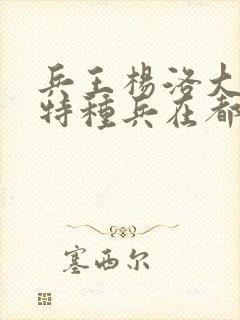 兵王楊洛大
特種兵在都
塞西尔